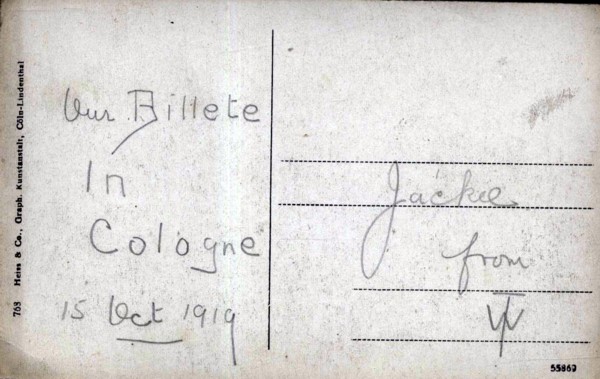 768 Heiss & Co., Graph. Kunstanstalt, Cöln-Lindenthal
Our Billete
In
Cologne
15 Oct 1919
Jackie
from
55869